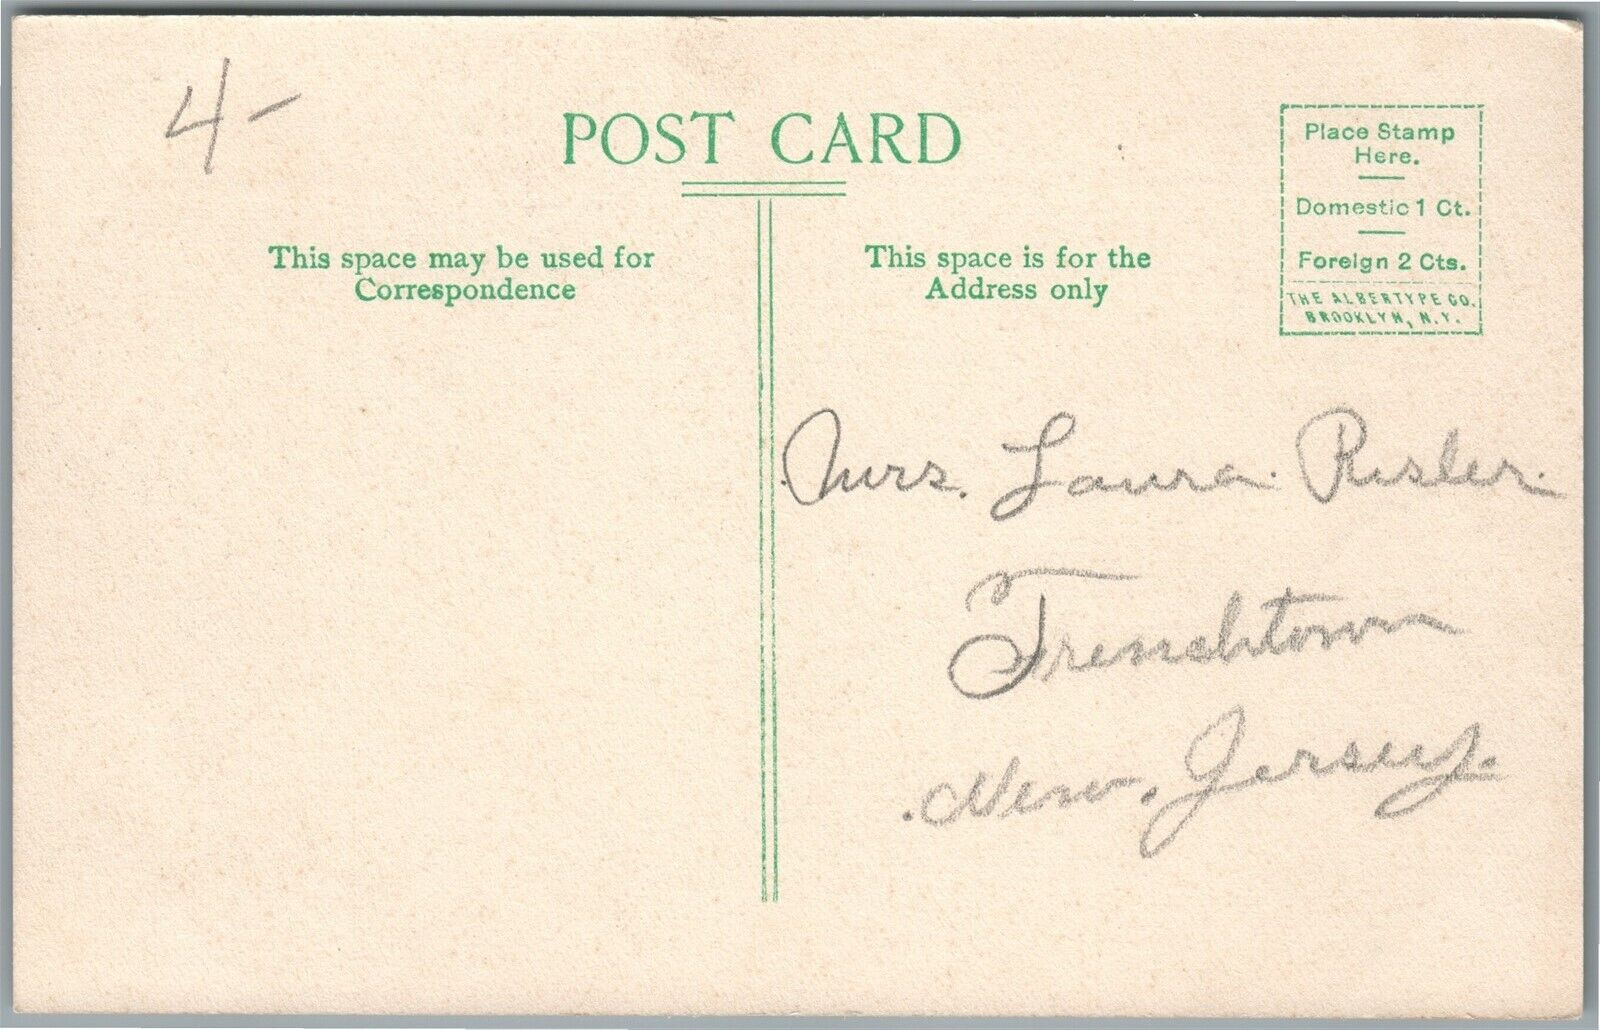 4-
POST CARD
This space may be used for
Correspondence
This space is for the
Address only
Place Stamp
Here.
Domestic 1 Ct.
Foreign 2 Cts.
THE ALBERTYPE CO.
BROOKLYN, N.Y.
Mrs. Laura Risler.
Frenchtown
New. Jersey.